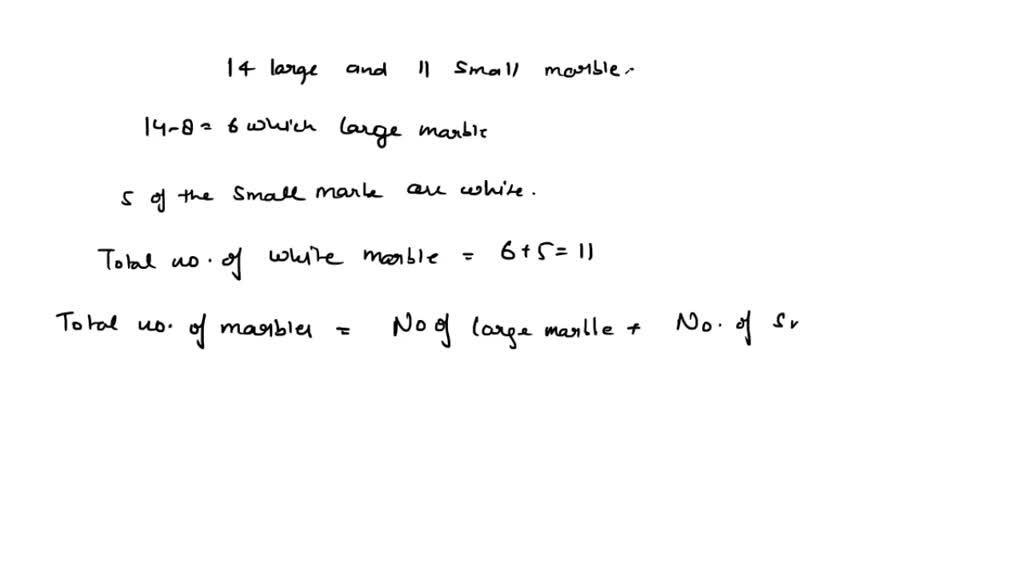 14 large and 11 small marble.
14-8 = 6 which large marble
5 of the small marle are white.
Total no. of white marble = 6+5=11
Total no. of marbles = No of large marlle + No. of s